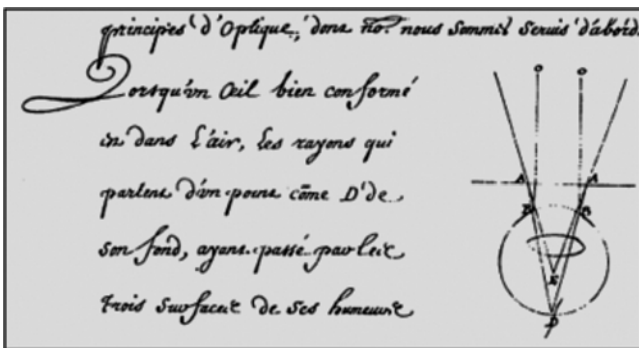 principes d'Optique, dont no.s nous Sommes Servis d'abord.
Lorsqu'un Œil bien conformé
est dans l'air, les rayons qui
partent d'un point cõme D de
son fond, ayant passé par les
trois surfaces de ses humeurs
O O
A A
B B
E
D